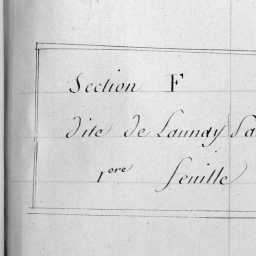 Section F
dite de Launay Sa
1ere feuille